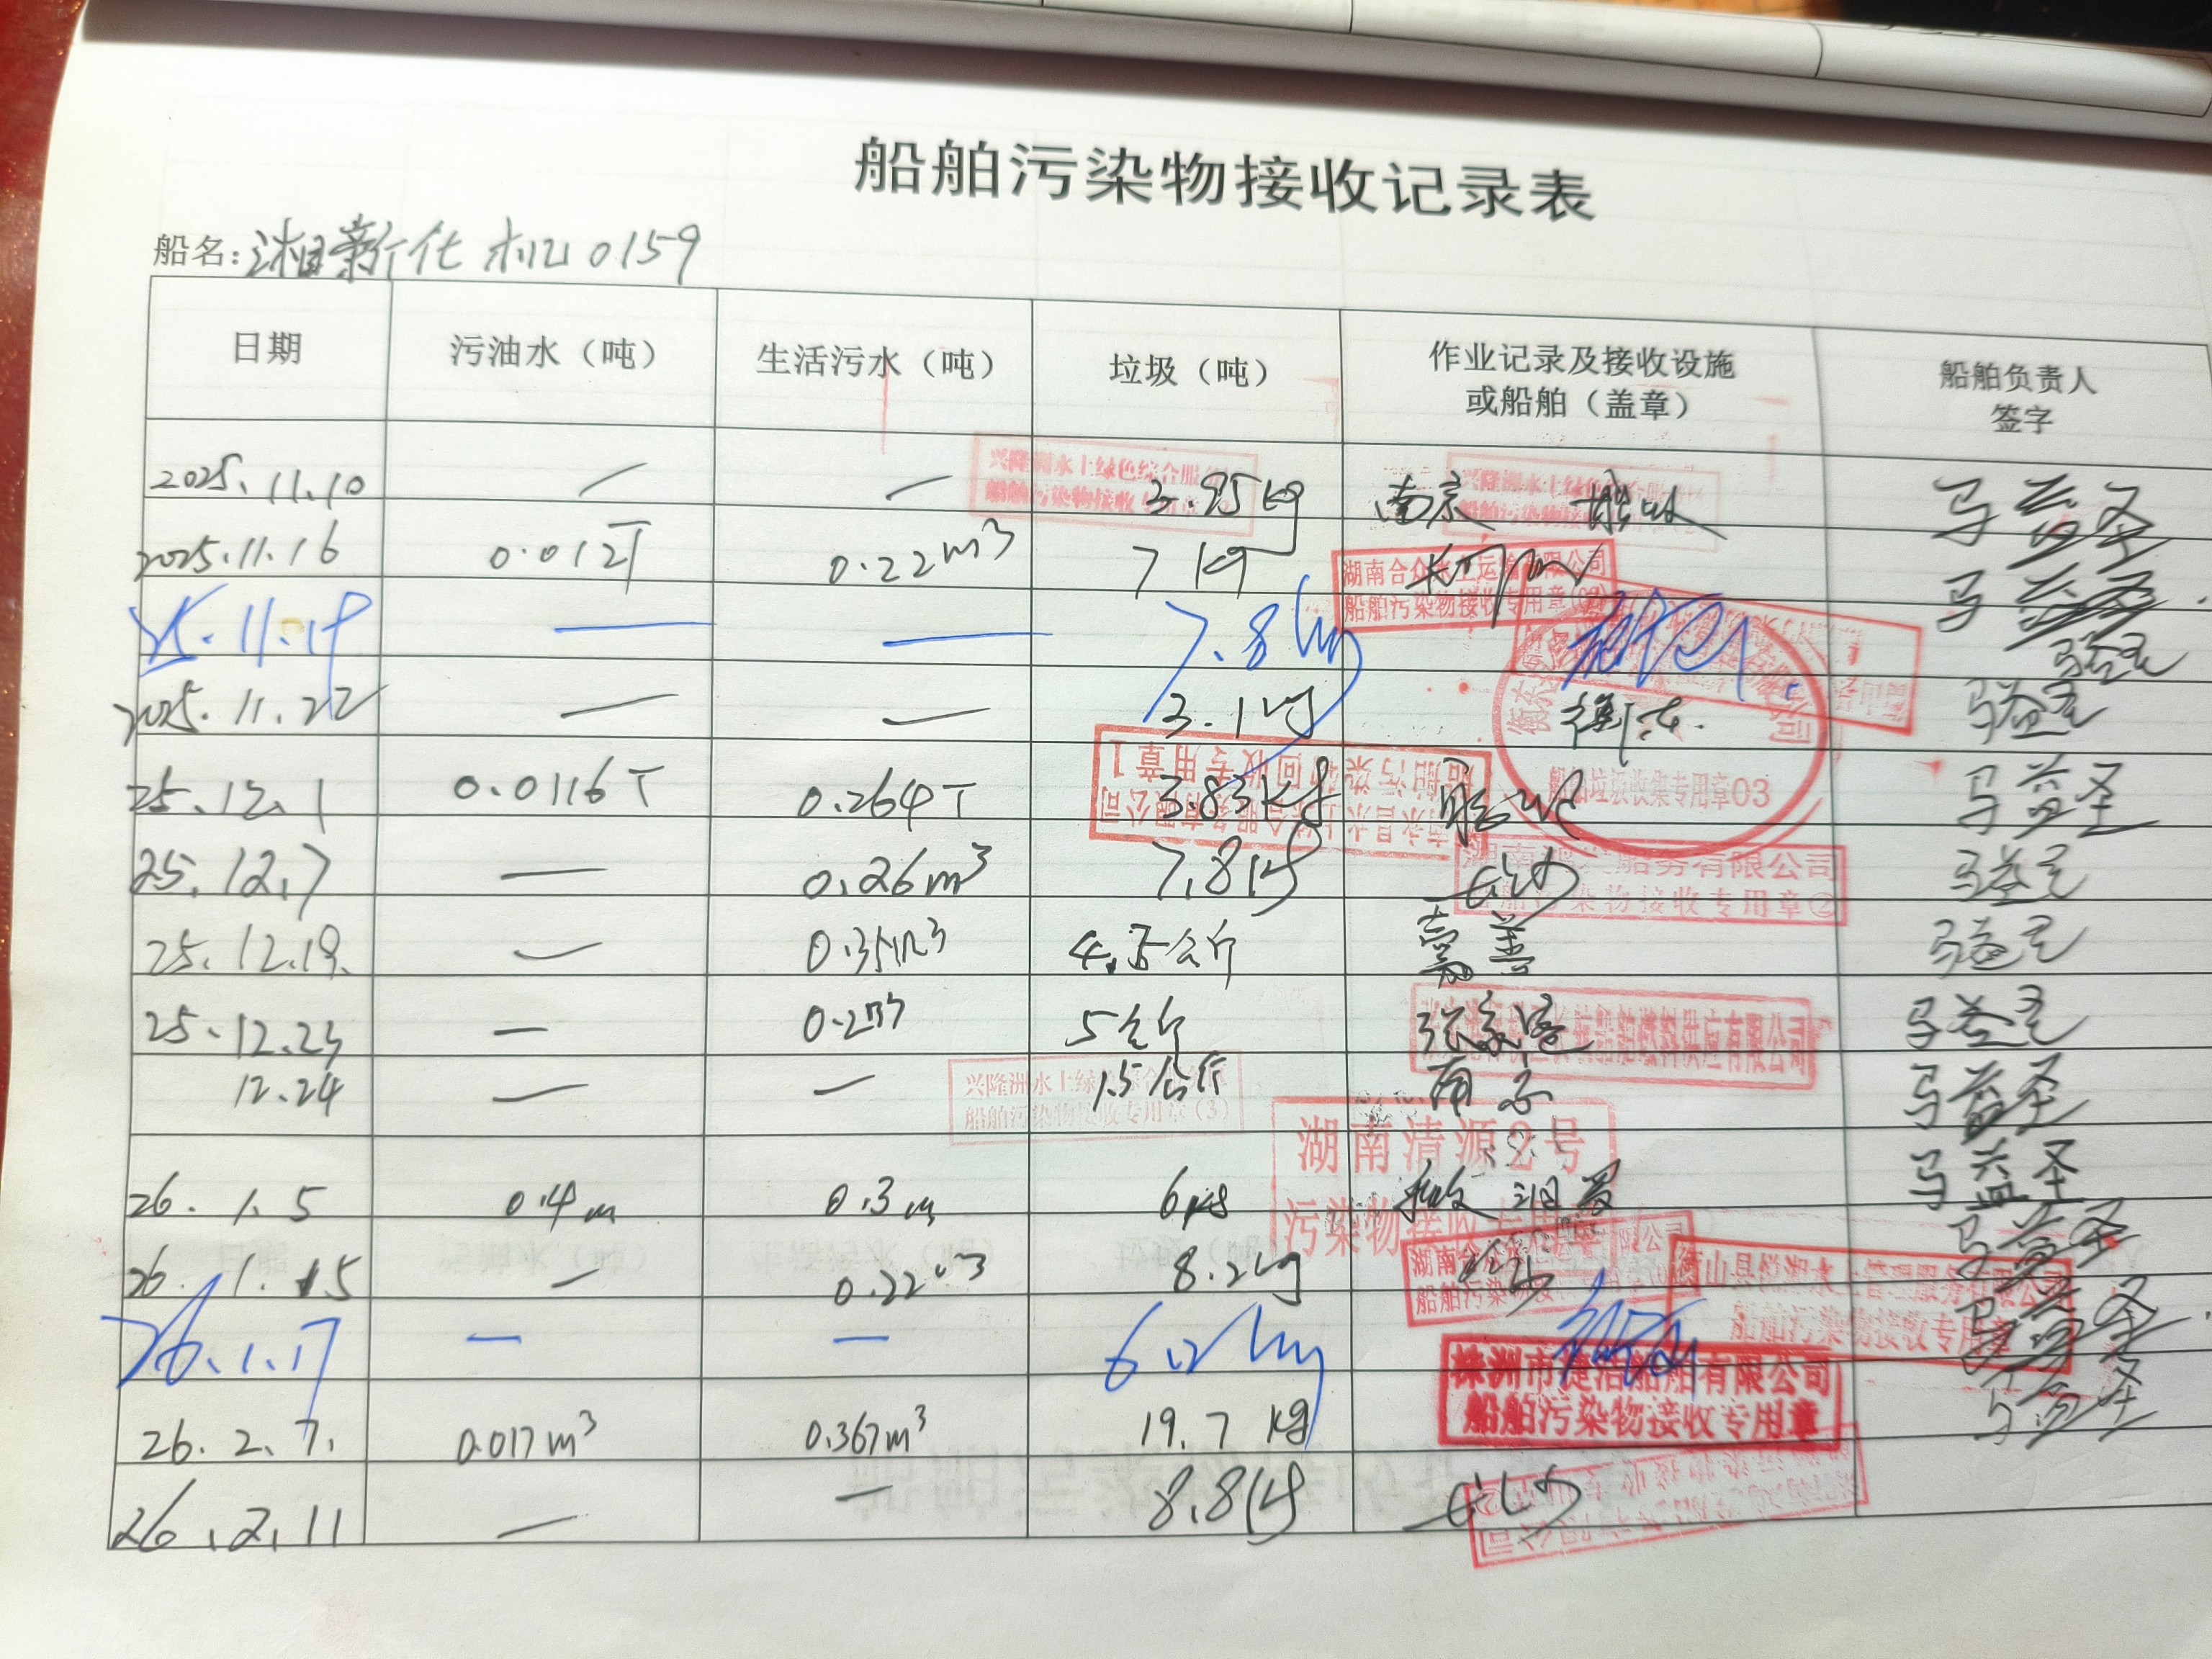 船舶污染物接收记录表
船名:湘新化机0159
日期 污油水（吨） 生活污水（吨） 垃圾（吨） 作业记录及接收设施或船舶（盖章） 船舶负责人签字
2025.11.10 — — 3.95kg 南京 马益圣
兴隆洲水上绿色综合服
船舶污染物接收专用章
2025.11.16 0.012T 0.22m³ 7kg 马益圣
湖南合众水上运输有限公司
船舶污染物接收专用章
25.11.19 — — 7.8kg 马益圣
2025.11.22 — — 3.1kg 衡东 马益圣
船舶垃圾收集专用章03
25.12.1 0.0116T 0.264T 3.83kg 马益圣
25.12.7 — 0.26m³ 7.8kg 长沙 马益圣
船务有限公司
船舶污染物接收专用章②
25.12.19. — 0.35m³ 4.5公斤 马益圣
25.12.23 — 0.2m³ 5公斤 张家港 马益圣
船舶燃料供应有限公司
12.24 — — 1.5公斤 南京 马益圣
兴隆洲水上绿色综合服
船舶污染物接收专用章(3)
湖南清源2号
污染物接收专用
26.1.5 0.4m 0.3m 6kg 马益圣
26.1.15 — 0.22m³ 8.2kg 长沙 马益圣
湖南合众
船舶污染物接
26.1.17 — — 6.2kg 马益圣
衡山县 水上管理服务有限公司
船舶污染物接收专用章
26.2.7. 0.017m³ 0.367m³ 19.7kg 马益圣
株洲市捷洁船舶有限公司
船舶污染物接收专用章
26.2.11 — — 8.8kg 长沙